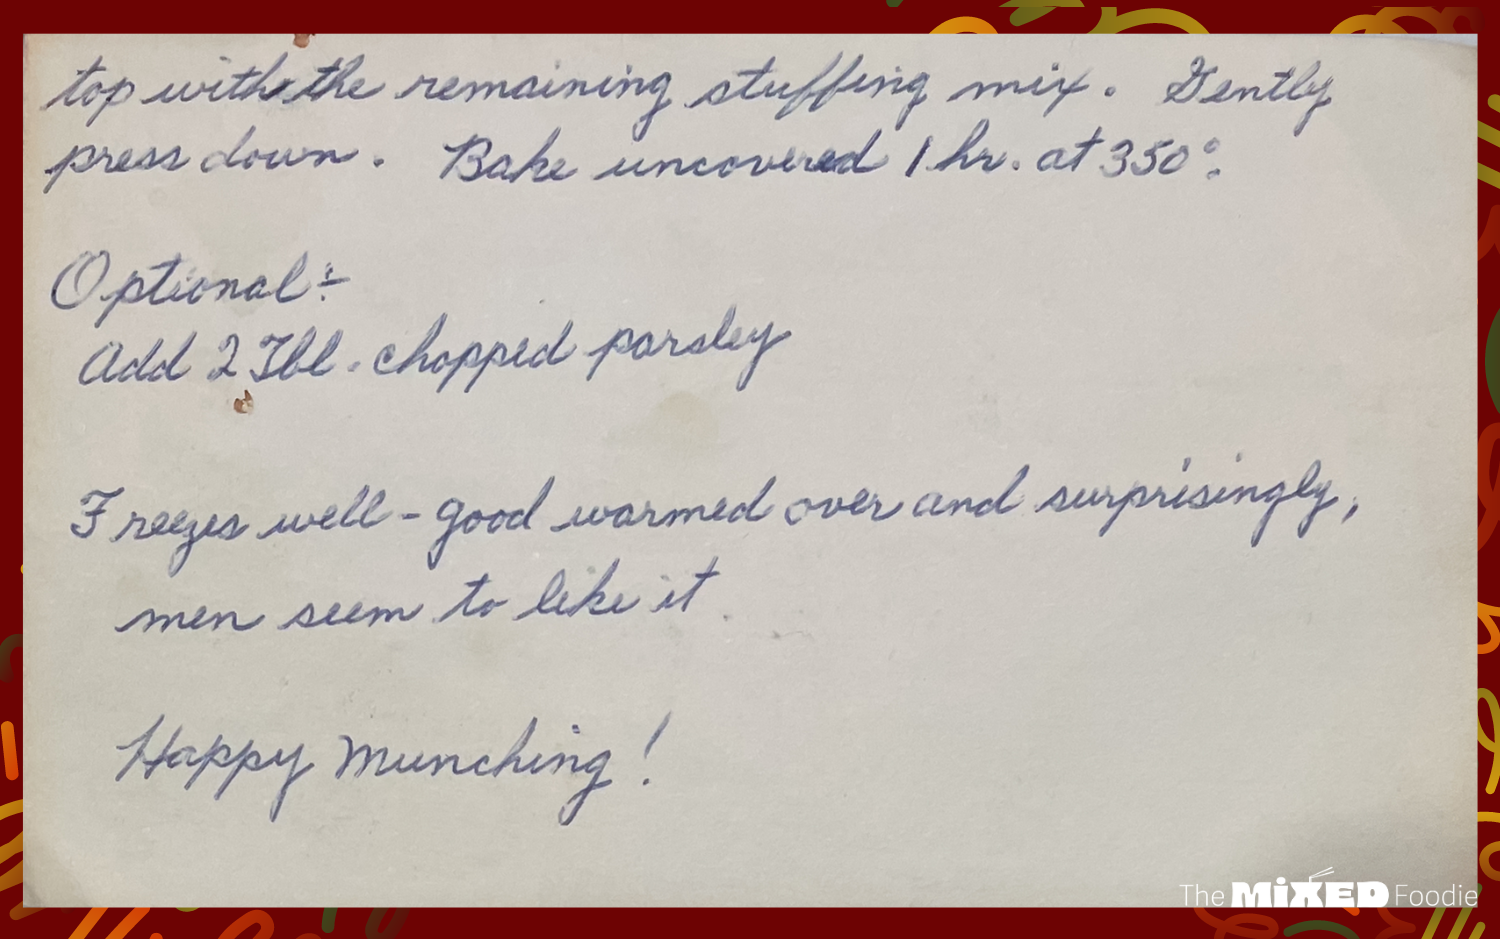 top with the remaining stuffing mix. Gently
press down. Bake uncovered 1 hr. at 350°.
Optional:
Add 2 Tbl. chopped parsley
Freezes well - good warmed over and surprisingly,
men seem to like it.
Happy Munching!
The MiXED Foodie